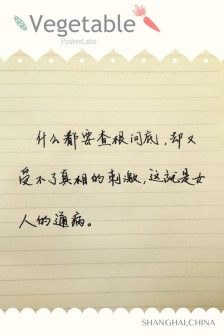 Vegetable
PosterLabs
什么都要查根问底,却又
受不了真相的刺激,这就是女
人的通病。
SHANGHAI,CHINA